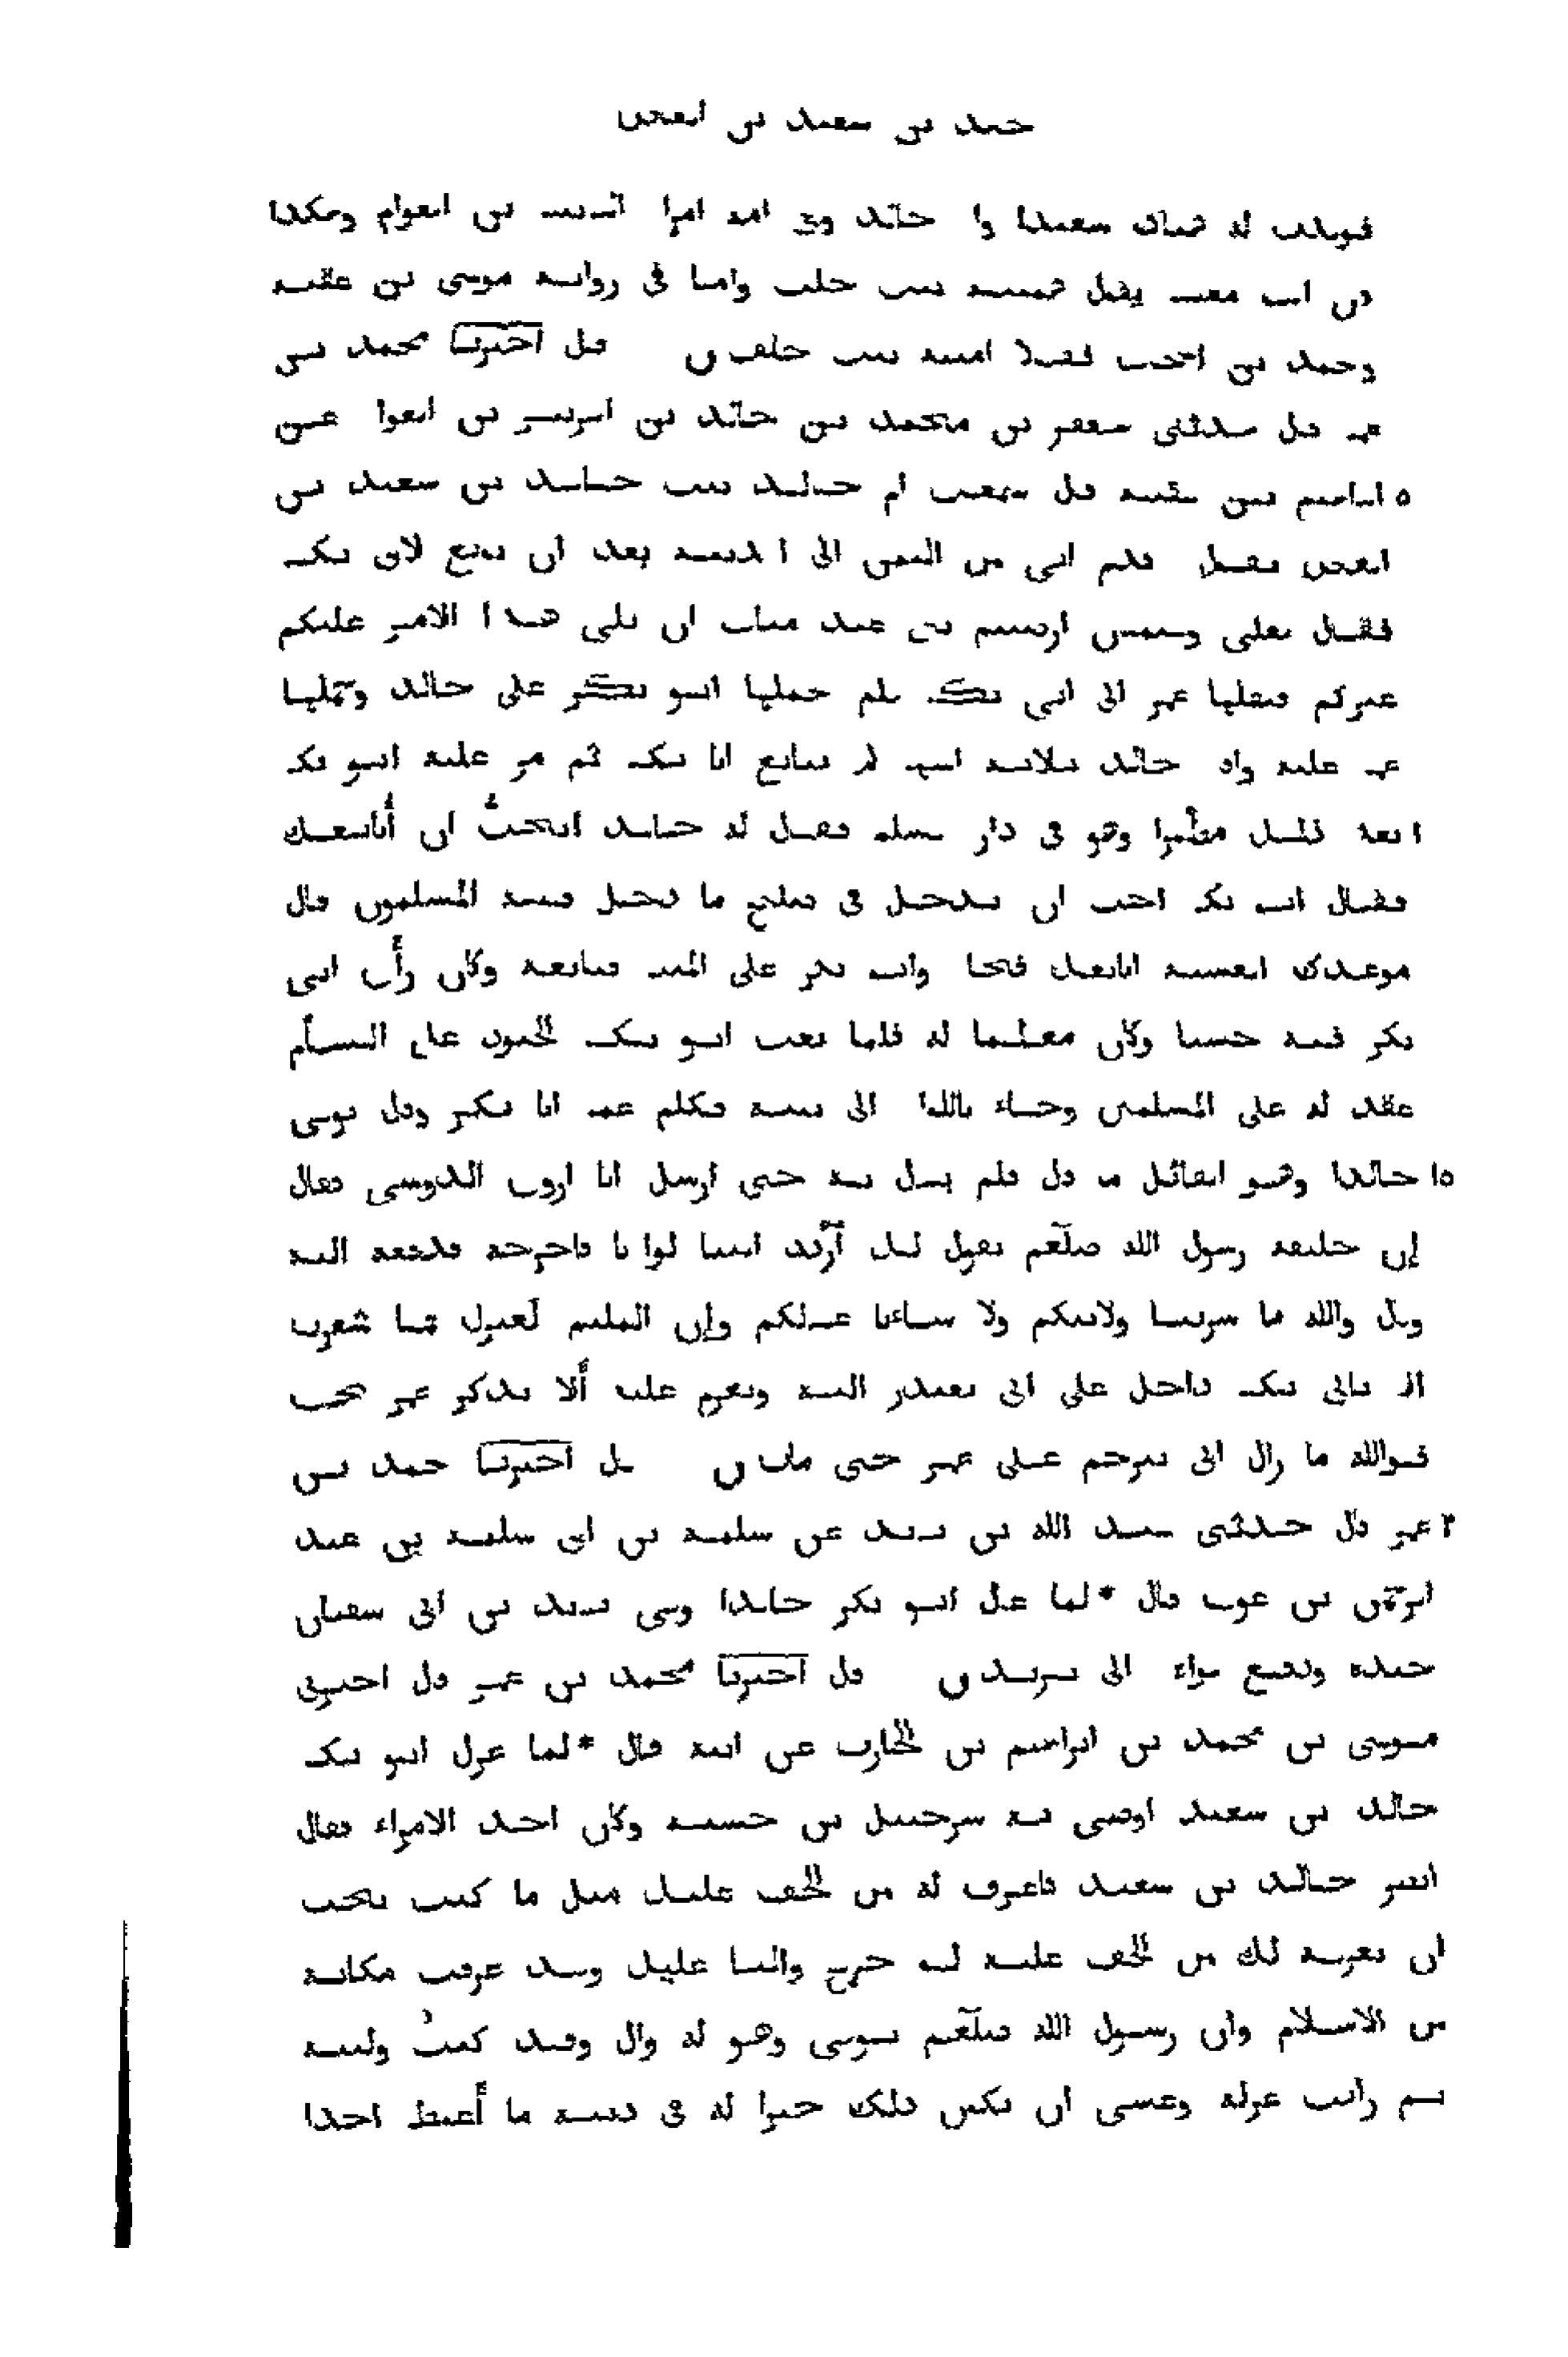 خالد بن سعيد بن العاص
فولدت له هناك سعيدا وامة خالد وهي امة امراة الزبير بن العوام وهكذا
كان ابو معشر يقول همينة بنت خلف وامّا في رواية موسى بن عقبة
ومحمد بن اسحاق فقالا امينة بنت خلف ن قال اخبرنا محمد بن
عمر قال حدثني جعفر بن محمد بن خالد بن الزبير بن العوام عن
٥ ابراهيم بن عقبة قال سمعت ام خالد بنت خالد بن سعيد بن
العاص تقول قدم ابي من اليمن الى المدينة بعد ان بويع لابي بكر
فقال لعلي وعثمن ارضيتم بني عبد مناف ان يلي هذا الامر عليكم
غيركم فنقلها عمر الى ابي بكر فلم يحملها ابو بكر على خالد وحملها
عمر عليه واقام خالد ثلاثة اشهر لم يبايع ابا بكر ثم مر عليه ابو بكر
بعد ذلك مظهرا وهو في داره فسلم فقال له خالد اتحبّ ان أبايعك
فقال ابو بكر احب ان تدخل في صالح ما دخل فيه المسلمون قال
موعدك العشية ابايعك فجاء وابو بكر على المنبر فبايعه وكان رأي ابي
بكر فيه حسنا وكان معظما له فلما بعث ابو بكر الجنود على الشأم
عقد له على المسلمين وجاء باللواء الى بيته فكلم عمر ابا بكر وقال تولي
١٥ خالدا وهو القائل ما قال فلم يزل به حتى ارسل ابا اروى الدوسي فقال
إن خليفة رسول الله صلّعم يقول لك آردد الينا لواءنا فاخرجه فدفعه اليه
وقال والله ما سرتنا ولايتكم ولا ساءنا عزلكم وإن المليم لغيرك فما شعرت
الا بابي بكر داخل على ابي يعتذر اليه ويعزم عليه ألا يذكر عمر بحرف
فوالله ما زال ابي يترحم على عمر حتى مات ن قال اخبرنا محمد بن
٢٠ عمر قال حدثني عبد الله بن يزيد عن سلمة بن ابي سلمة بن عبد
الرحمن بن عوف قال *لما عزل ابو بكر خالدا ولى يزيد بن ابي سفيان
جنده ودفع لواءه الى يزيد ن قال اخبرنا محمد بن عمر قال اخبرني
موسى بن محمد بن ابراهيم بن الحارث عن ابيه قال *لما عزل ابو بكر
خالد بن سعيد اوصى به شرحبيل بن حسنة وكان احد الامراء فقال
انظر خالد بن سعيد فاعرف له من الحق عليك مثل ما كنت تحب
ان يعرفه لك من الحق عليه لو خرج واليا عليك وقد عرفت مكانه
من الاسلام وان رسول الله صلّعم توفي وهو له وال وقد كنتُ وليته
ثم رأيت عزله وعسى ان يكون ذلك خيرا له في دينه ما أغبط احدا